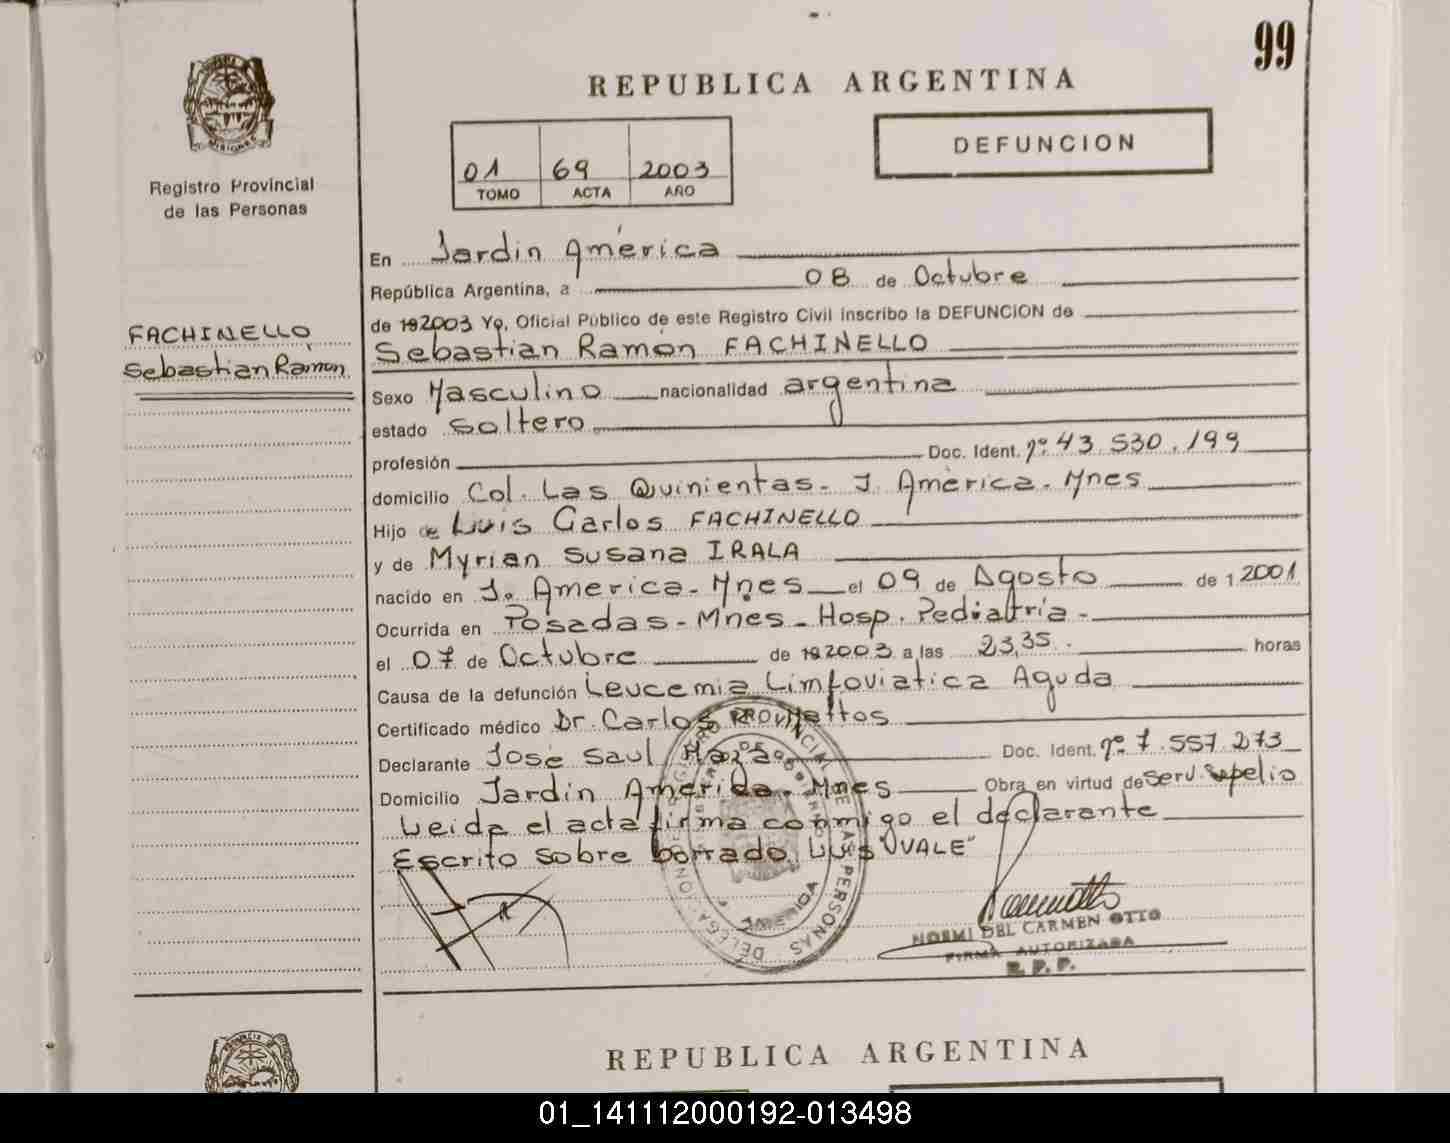 99
REPUBLICA ARGENTINA
DEFUNCION
01 69 2003
TOMO ACTA AÑO
MISIONES
Registro Provincial
de las Personas
FACHINELLO
Sebastian Ramón
En Jardin América
República Argentina, a 08 de Octubre
de 192003 Yo, Oficial Público de este Registro Civil inscribo la DEFUNCION de
Sebastian Ramón FACHINELLO
Sexo Masculino nacionalidad argentina
estado Soltero
profesión Doc. Ident. nº. 43.530.199
domicilio Col. Las Quinientas- J. América- Mnes
Hijo de Luis Carlos FACHINELLO
y de Myrian Susana IRALA
nacido en J. America- Mnes el 09 de Agosto de 1 2001
Ocurrida en Posadas- Mnes- Hosp. Pediatría-
el 07 de Octubre de 192003 a las 23,35.- horas
Causa de la defunción Leucemia Limfoviatica Aguda
Certificado médico Dr. Carlos Mattos
Declarante José Saul Doc. Ident. nº. 7.557.273
Domicilio Jardin América- Mnes Obra en virtud de Serv. Sepelio
Leida el acta firma conmigo el declarante
Escrito sobre borrado, Luis "VALE"
REGISTRO PROVINCIAL DE LAS PERSONAS
DELEGACION
AMERICA
NOEMI DEL CARMEN OTTO
FIRMA AUTORIZADA
R. P. P.
REPUBLICA ARGENTINA
01_141112000192-013498